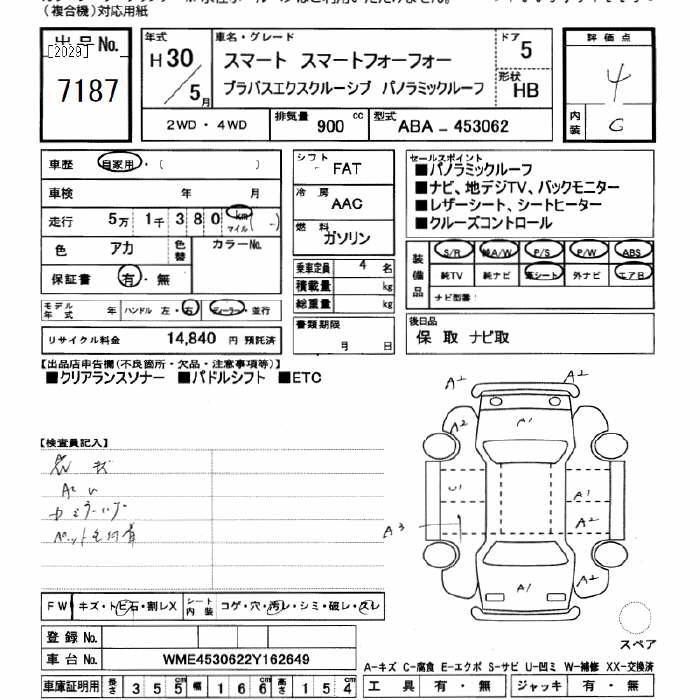 (複合機)対応用紙
出品No.
[2029]
7187
年式
H30
5月
車名・グレード
スマート スマートフォーフォー
ブラバスエクスクルーシブ パノラミックルーフ
ドア
5
形状
HB
評価点
4
内装
C
2WD・4WD
排気量
900 cc
型式
ABA - 453062
車歴 自家用・( )
車検 年 月
走行 5万 1千 3 8 0 km マイル ( - )
色 アカ 色替 カラーNo.
保証書 有・無
モデル年式 年 ハンドル 左・右 ディーラー・並行
リサイクル料金 14,840 円 預託済
シフト
FAT
冷房
AAC
燃料
ガソリン
乗車定員 4 名
積載量 kg
総重量 kg
書類期限
月 日
セールスポイント
■パノラミックルーフ
■ナビ、地デジTV、バックモニター
■レザーシート、シートヒーター
■クルーズコントロール
装備品
S/R 純A/W P/S P/W ABS
純TV 純ナビ 革シート 外ナビ エアB
ナビ型番:
後日品
保 取 ナビ取
【出品店申告欄(不良箇所・欠品・注意事項等)】
■クリアランスソナー ■パドルシフト ■ETC
【検査員記入】
A2 U
A2
A2
A2
A1
U1
A1
A2
A3
A1
A2
スペア
FW キズ・トビ石・割レX シート内装 コゲ・穴・汚レ・シミ・破レ・スレ
登録No.
車台No. WME4530622Y162649
車庫証明用 長さ 355cm 幅 166cm 高さ 154cm
A-キズ C-腐食 E-エクボ S-サビ U-凹ミ W-補修 XX-交換済
工具 有・無 ジャッキ 有・無